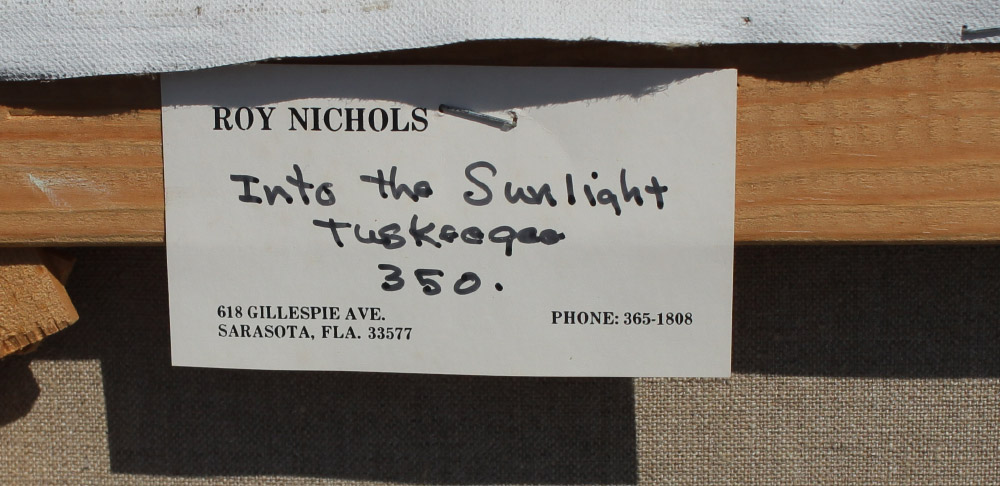 ROY NICHOLS
Into the Sunlight
Tuskeegee
350.
618 GILLESPIE AVE.
SARASOTA, FLA. 33577
PHONE: 365-1808